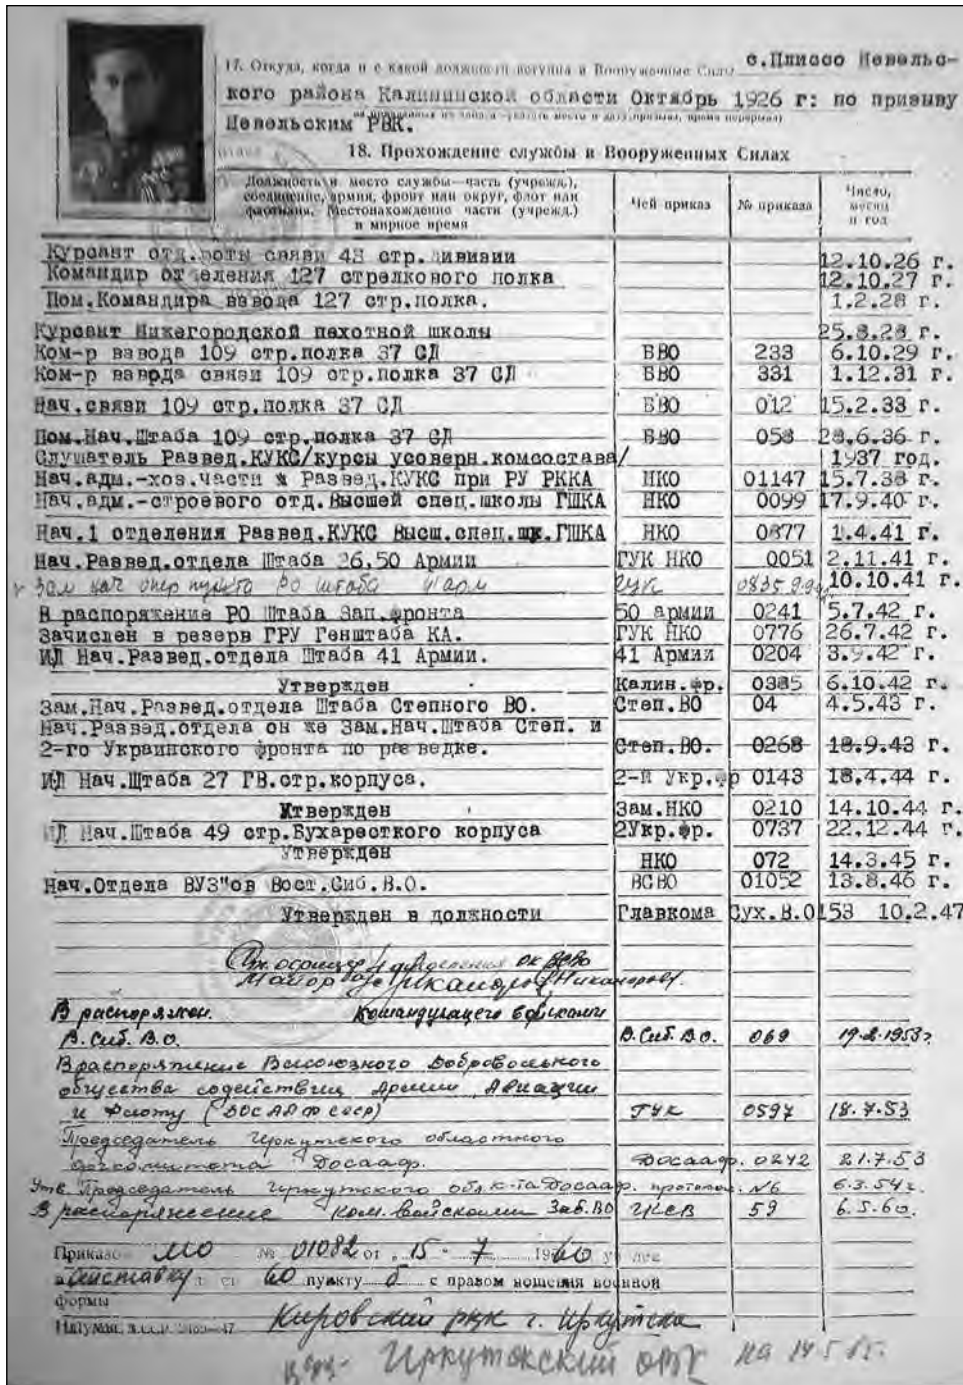 17. Откуда, когда и с какой должности вступил в Вооруженные Силы с.Плиссо Невельс-
кого района Калининской области Октябрь 1926 г: по призыву
Невельским РВК.
18. Прохождение службы в Вооруженных Силах
Должность и место службы—часть (учрежд.), соединение, армия, фронт или округ, флот или флотилия. Местонахождение части (учрежд.) в мирное время
Чей приказ
№ приказа
Число, месяц и год
Курсант отд.роты связи 48 стр.дивизии 12.10.26 г.
Командир отделения 127 стрелкового полка 12.10.27 г.
Пом.Командира взвода 127 стр.полка. 1.2.28 г.
Курсант Нижегородской пехотной школы 25.8.28 г.
Ком-р взвода 109 стр.полка 37 СД БВО 233 6.10.29 г.
Ком-р взвода связи 109 стр.полка 37 СД БВО 331 1.12.31 г.
Нач.связи 109 стр.полка 37 СД БВО 012 15.2.33 г.
Пом.Нач.Штаба 109 стр.полка 37 СД БВО 058 28.6.36 г.
Слушатель Развед.КУКС/курсы усоверн.комсостава/ 1937 год.
Нач.адм.-хоз.части Развед.КУКС при РУ РККА НКО 01147 15.7.38 г.
Нач.адм.-строевого отд.Высшей спец.школы ГШКА НКО 0099 17.9.40 г.
Нач.1 отделения Развед.КУКС Высш.спец.шк.ГШКА НКО 0877 1.4.41 г.
Нач.Развед.отдела Штаба 26.50 Армии ГУК НКО 0051 2.11.41 г.
Зам нач опер пункта РО штаба арм ГУК 0835 10.10.41 г.
В распоряжение РО Штаба Зап.фронта 50 армии 0241 5.7.42 г.
Зачислен в резерв ГРУ Генштаба КА. ГУК НКО 0776 26.7.42 г.
ИД Нач.Развед.отдела Штаба 41 Армии. 41 Армии 0204 3.9.42 г.
Утвержден Калин.фр. 0385 6.10.42 г.
Зам.Нач.Развед.отдела Штаба Степного ВО. Степ.ВО 04 4.5.43 г.
Нач.Развед.отдела он же Зам.Нач.Штаба Степ. и
2-го Украинского фронта по разведке. Степ.ВО. 0268 18.9.43 г.
ИД Нач.Штаба 27 ГВ.стр.корпуса. 2-й Укр.фр 0143 18.4.44 г.
Утвержден Зам.НКО 0210 14.10.44 г.
ИД Нач.Штаба 49 стр.Бухаресткого корпуса 2Укр.фр. 0737 22.12.44 г.
Утвержден НКО 072 14.3.45 г.
Нач.Отдела ВУЗ"ов Вост.Сиб.В.О. ВСВО 01052 13.8.46 г.
Утвержден в должности Главкома Сух.В.О 153 10.2.47
Ст. офицер 4 отделения ОК ВСВО
Майор Никаноров /Никаноров/.
В распоряжен. Командующего войсками
В. Сиб. В.О. В. Сиб. В.О. 069 1953г
В распоряжение Всесоюзного Добровольного
общества содействия Армии Авиации
и Флоту (ДОСААФ СССР) ГУК 0597 18.7.53
Председатель Иркутского областного
оргкомитета Досааф. Досааф. 0242 21.7.53
Утв. Председатель Иркутского обл. к-та Досааф. протокол. №6 6.3.54г.
В распоряжение Ком. войсками Заб.ВО УКСВ 59 6.5.60.
Приказом МО № 01082 от „15" 7 1960 уволен
в отставку по ст 60 пункту б с правом ношения военной
формы
Кировский рвк г. Иркутска
Иркутский ОВК на 14 5